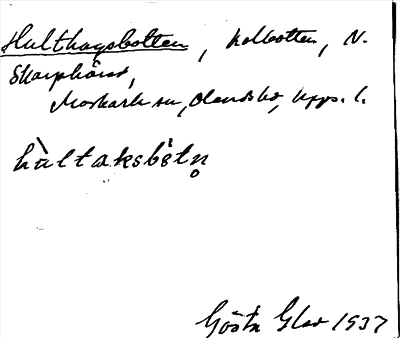 Hulthagsbotten, kolbotten, N.
Skarphäret,
Morkarla sn, Olands hd, Upps. l.
hùltaksbŏ́tn̥
Gösta Glad 1937